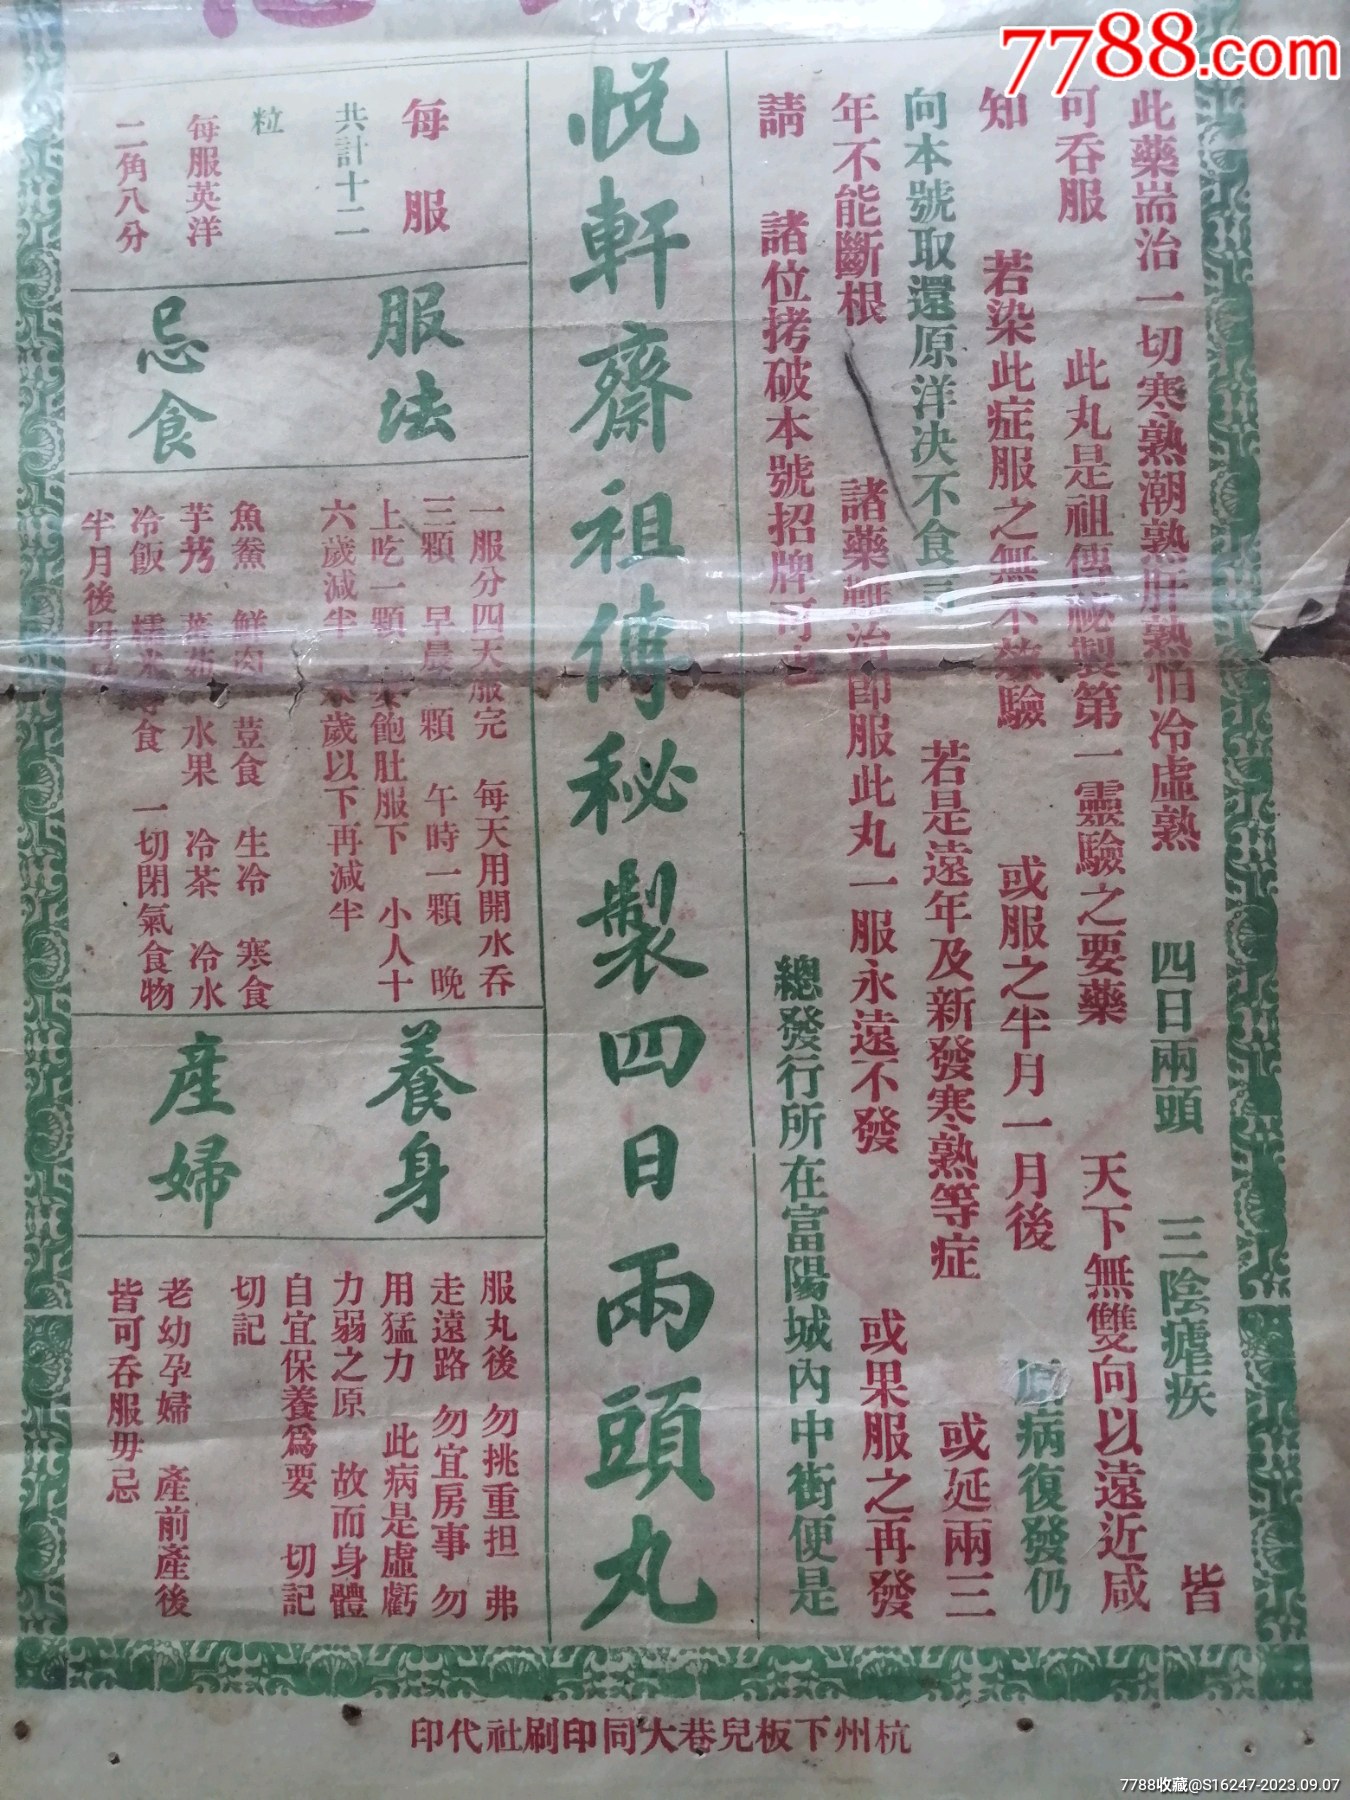 7788.com
此藥耑治一切寒熟潮熟肝熟怕冷虛熟 四日兩頭 三陰瘧疾 皆
可吞服 此丸是祖傳秘製第一靈驗之要藥 天下無雙向以遠近咸
知 若染此症服之無不 驗 或服之半月一月後 病復發仍
向本號取還原洋决不食言 若是遠年及新發寒熟等症 或延兩三
年不能斷根 諸藥難治即服此丸一服永遠不發 或果服之再發
請 諸位拷破本號招牌可也 總發行所在富陽城內中街便是
悅軒齋祖傳秘製四日兩頭丸
每服
共計十二
粒
每服英洋
二角八分
服法
忌食
一服分四天服完 每天用開水吞
三顆 早晨一顆 午時一顆 晚
上吃一顆 飽肚服下 小人十
六歲減半 歲以下再減半
魚鯗 鮮肉 荳食 生冷 寒食
芋艿 菜菇 水果 冷茶 冷水
冷飯 糯米 食 一切閉氣食物
半月後毋忌
養身
產婦
服丸後 勿挑重担 弗
走遠路 勿宜房事 勿
用猛力 此病是虛虧
力弱之原 故而身體
自宜保養爲要 切記
切記
老幼孕婦 產前產後
皆可吞服毋忌
印代社刷印同大巷兒板下州杭
7788收藏@S16247-2023.09.07